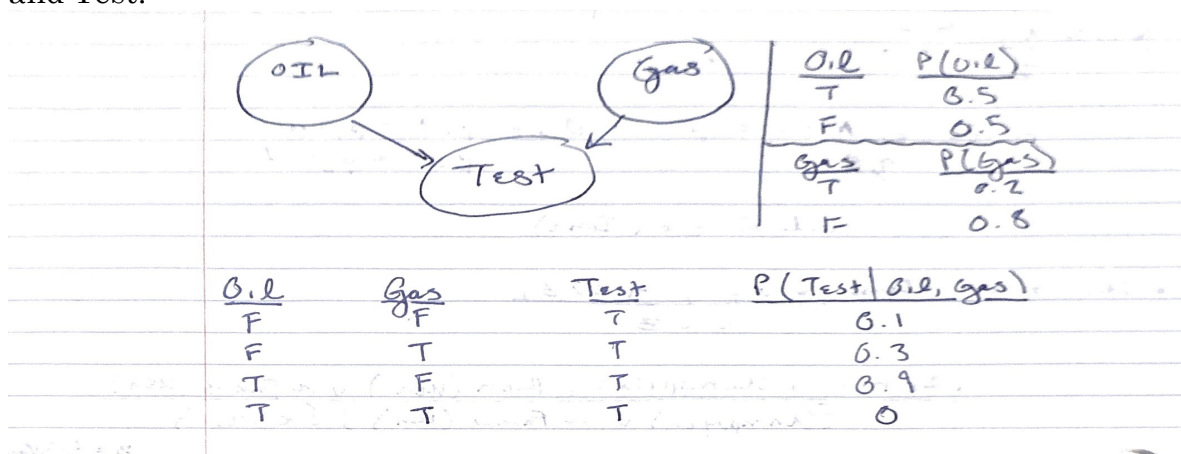 and Test.
OIL Gas
Test
Oil P(Oil)
T 0.5
F 0.5
Gas P(Gas)
T 0.2
F 0.8
Oil Gas Test P(Test|Oil, Gas)
F F T 0.1
F T T 0.3
T F T 0.9
T T T 0